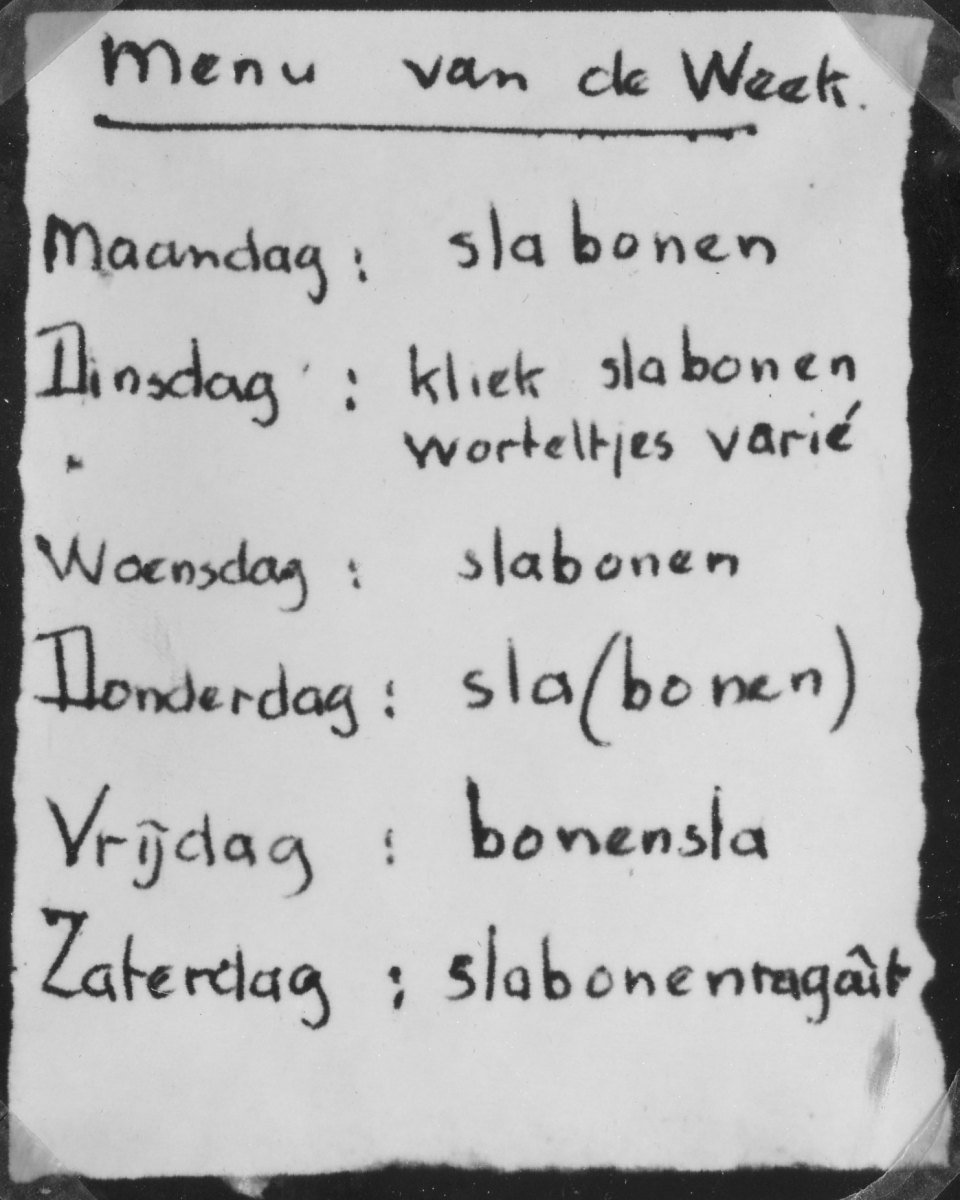 Menu van de Week.
Maandag : sla bonen
Dinsdag : kliek slabonen
" worteltjes varié
Woensdag : slabonen
Donderdag : sla (bonen)
Vrijdag : bonensla
Zaterdag : slabonenragâut